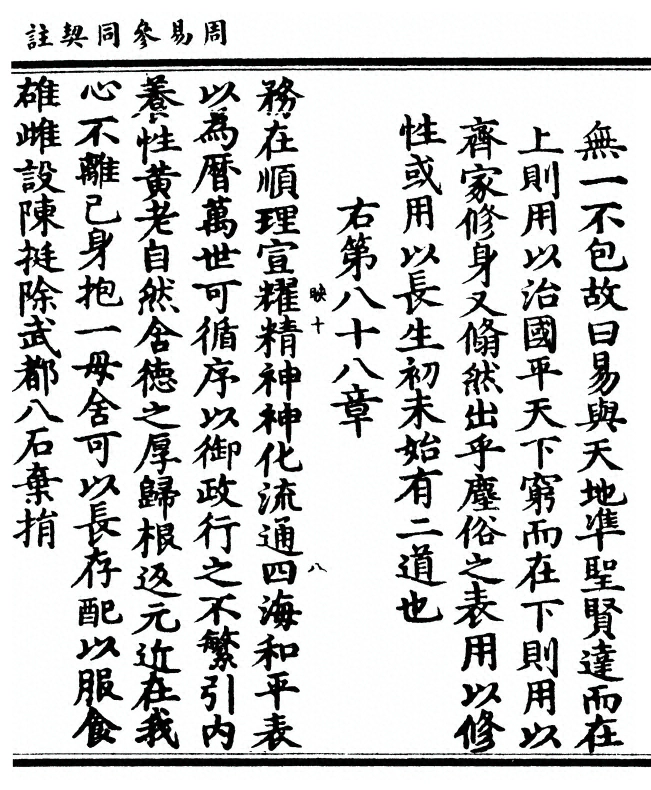 周易參同契註
無一不包故曰易與天地準聖賢達而在
上則用以治國平天下窮而在下則用以
齊家修身又翛然出乎塵俗之表用以修
性或用以長生初未始有二道也
右第八十八章
映十
八
務在順理宣耀精神神化流通四海和平表
以為曆萬世可循序以御政行之不繁引内
養性黃老自然含德之厚歸根返元近在我
心不離己身抱一毋舍可以長存配以服食
雄雌設陳挺除武都八石棄捐